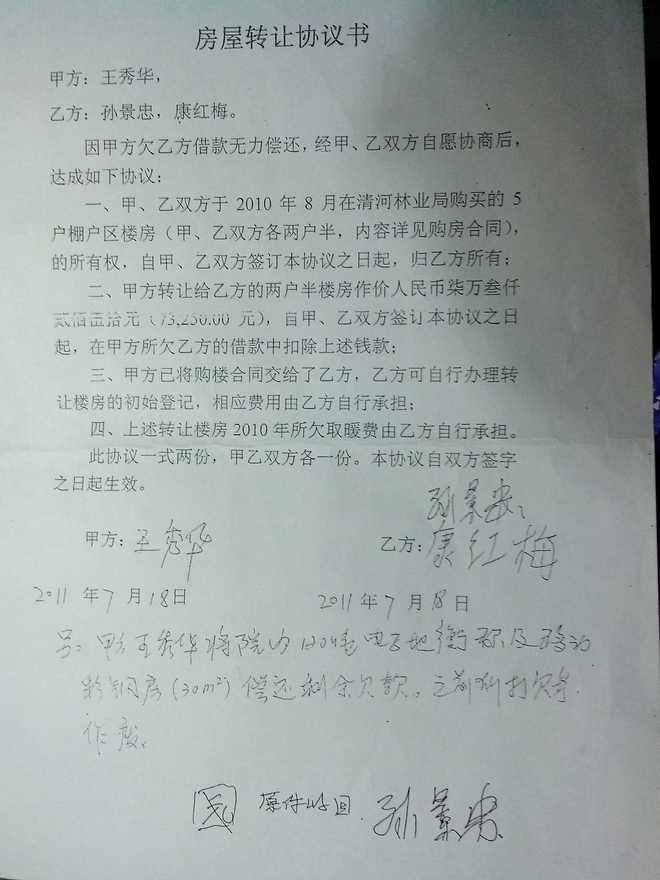 房屋转让协议书
甲方：王秀华，
乙方：孙景忠，康红梅。
因甲方欠乙方借款无力偿还，经甲、乙双方自愿协商后，
达成如下协议：
一、甲、乙双方于 2010 年 8 月在清河林业局购买的 5
户棚户区楼房（甲、乙双方各两户半，内容详见购房合同），
的所有权，自甲、乙双方签订本协议之日起，归乙方所有；
二、甲方转让给乙方的两户半楼房作价人民币柒万叁仟
贰佰伍拾元（73,250.00 元），自甲、乙双方签订本协议之日
起，在甲方所欠乙方的借款中扣除上述钱款；
三、甲方已将购楼合同交给了乙方，乙方可自行办理转
让楼房的初始登记，相应费用由乙方自行承担；
四、上述转让楼房 2010 年所欠取暖费由乙方自行承担。
此协议一式两份，甲乙双方各一份。本协议自双方签字
之日起生效。
孙景忠
甲方：王秀华 乙方：康红梅
2011 年 7 月 18 日 2011 年 7 月 18 日
另：甲方王秀华将院内120吨电子地衡称及移动
彩钢房(30m²)偿还剩余欠款。之前所打欠条
作废。
原件 孙景忠